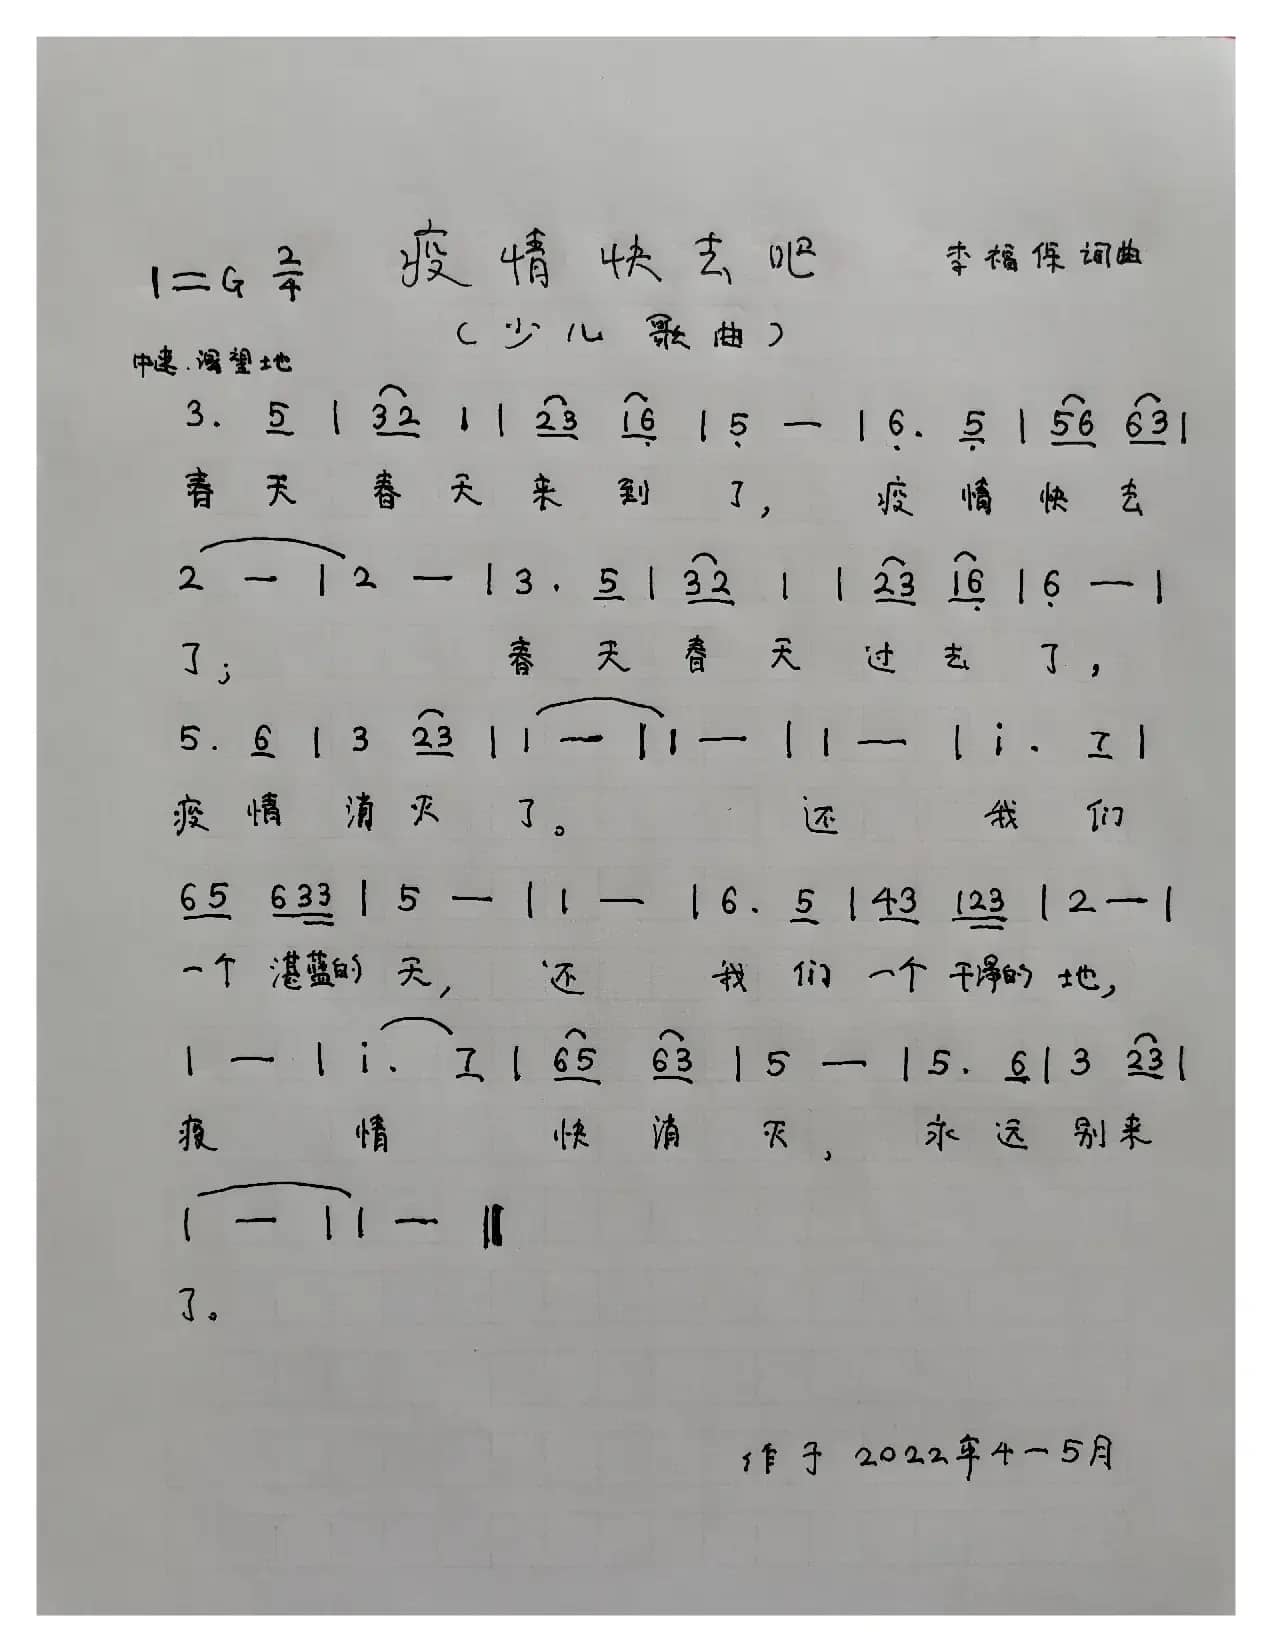 1=G 2/4 疫情快去吧 李福保词曲
(少儿歌曲)
中速.渴望地
3. 5 | 32 1 | 23 16 | 5 — | 6. 5 | 56 63 |
春天春天来到了,疫情快去
2 — | 2 — | 3. 5 | 32 1 | 23 16 | 6 — |
了;春天春天过去了,
5. 6 | 3 23 | 1 — | 1 — | 1 — | i. 7 |
疫情消灭了。还我们
65 633 | 5 — | 1 — | 6. 5 | 43 123 | 2 — |
一个湛蓝的天,还我们一个干净的地,
1 — | i. 7 | 65 63 | 5 — | 5. 6 | 3 23 |
疫情快消灭,永远别来
1 — | 1 — ‖
了。
作于2022年4—5月